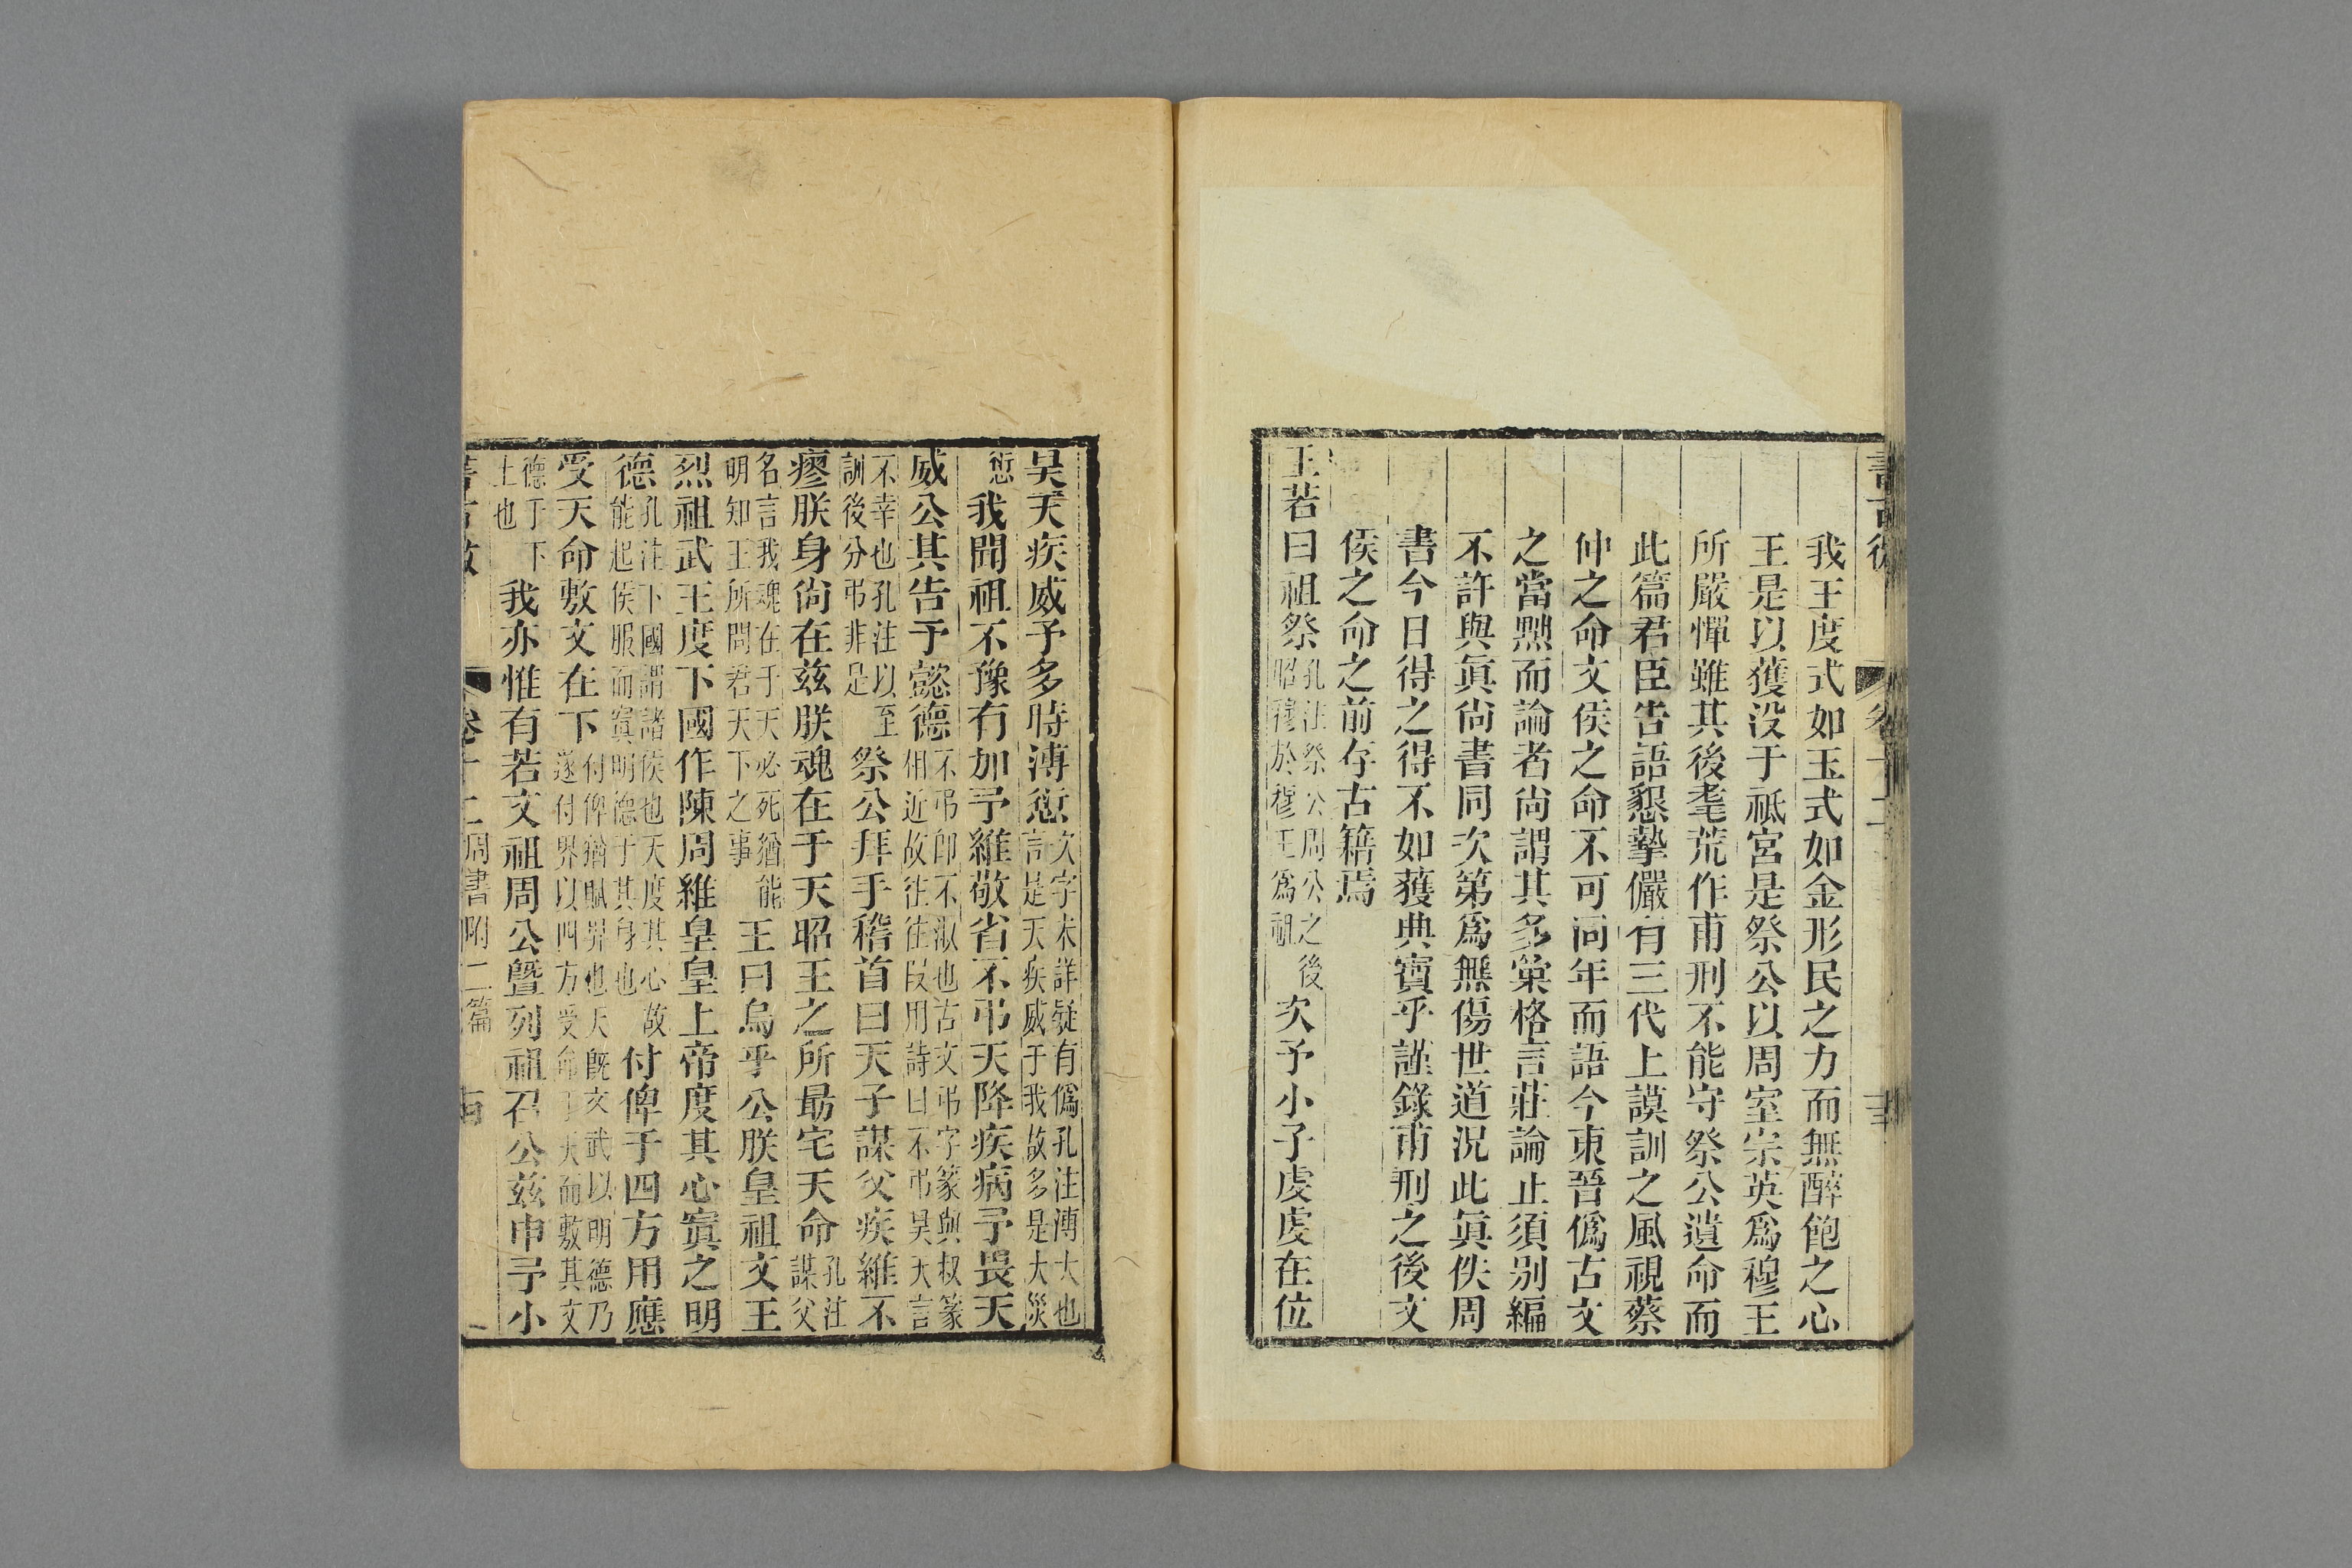 我王度式如玉式如金形民之力而無醉飽之心
王是以獲没于祗宮是祭公以周室宗英爲穆王
所嚴憚雖其後耄荒作甫刑不能守祭公遺命而
此篇君臣告語懇摯儼有三代上謨訓之風視蔡
仲之命文侯之命不可同年而語今東晉僞古文
之當黜而論者尚謂其多蒐格言莊論止須别編
不許與眞尚書同次第爲無傷世道況此眞佚周
書今日得之得不如獲典寶乎謹錄甫刑之後文
侯之命之前存古籍焉
王若曰祖祭孔注祭公周公之後昭穆於穆王爲祖次予小子虔虔在位
昊天疾威予多時溥愆次字未詳疑有僞孔注溥大也言是天疾威于我故多是大災
愆我聞祖不豫有加予維敬省不弔天降疾病予畏天
威公其告予懿德不弔卽不淑也古文弔字篆與叔篆相近故往往叚用詩曰不弔昊天言
不幸也孔注以至訓後分弔非是祭公拜手稽首曰天子謀父疾維不
瘳朕身尚在茲朕魂在于天昭王之所勗宅天命孔注謀父
名言我魂在于天必死猶能明知王所問君天下之事王曰烏乎公朕皇祖文王
烈祖武王度下國作陳周維皇皇上帝度其心寘之明
德孔注下國謂諸侯也天度其心故能起侯服而寘明德于其身也付俾于四方用應
受天命敷文在下付俾猶畀也天旣文武以明德乃遂付畀以四方受命于天而敷其文
德于下土也我亦惟有若文祖周公曁列祖召公茲申予小
卷十二周書附二篇